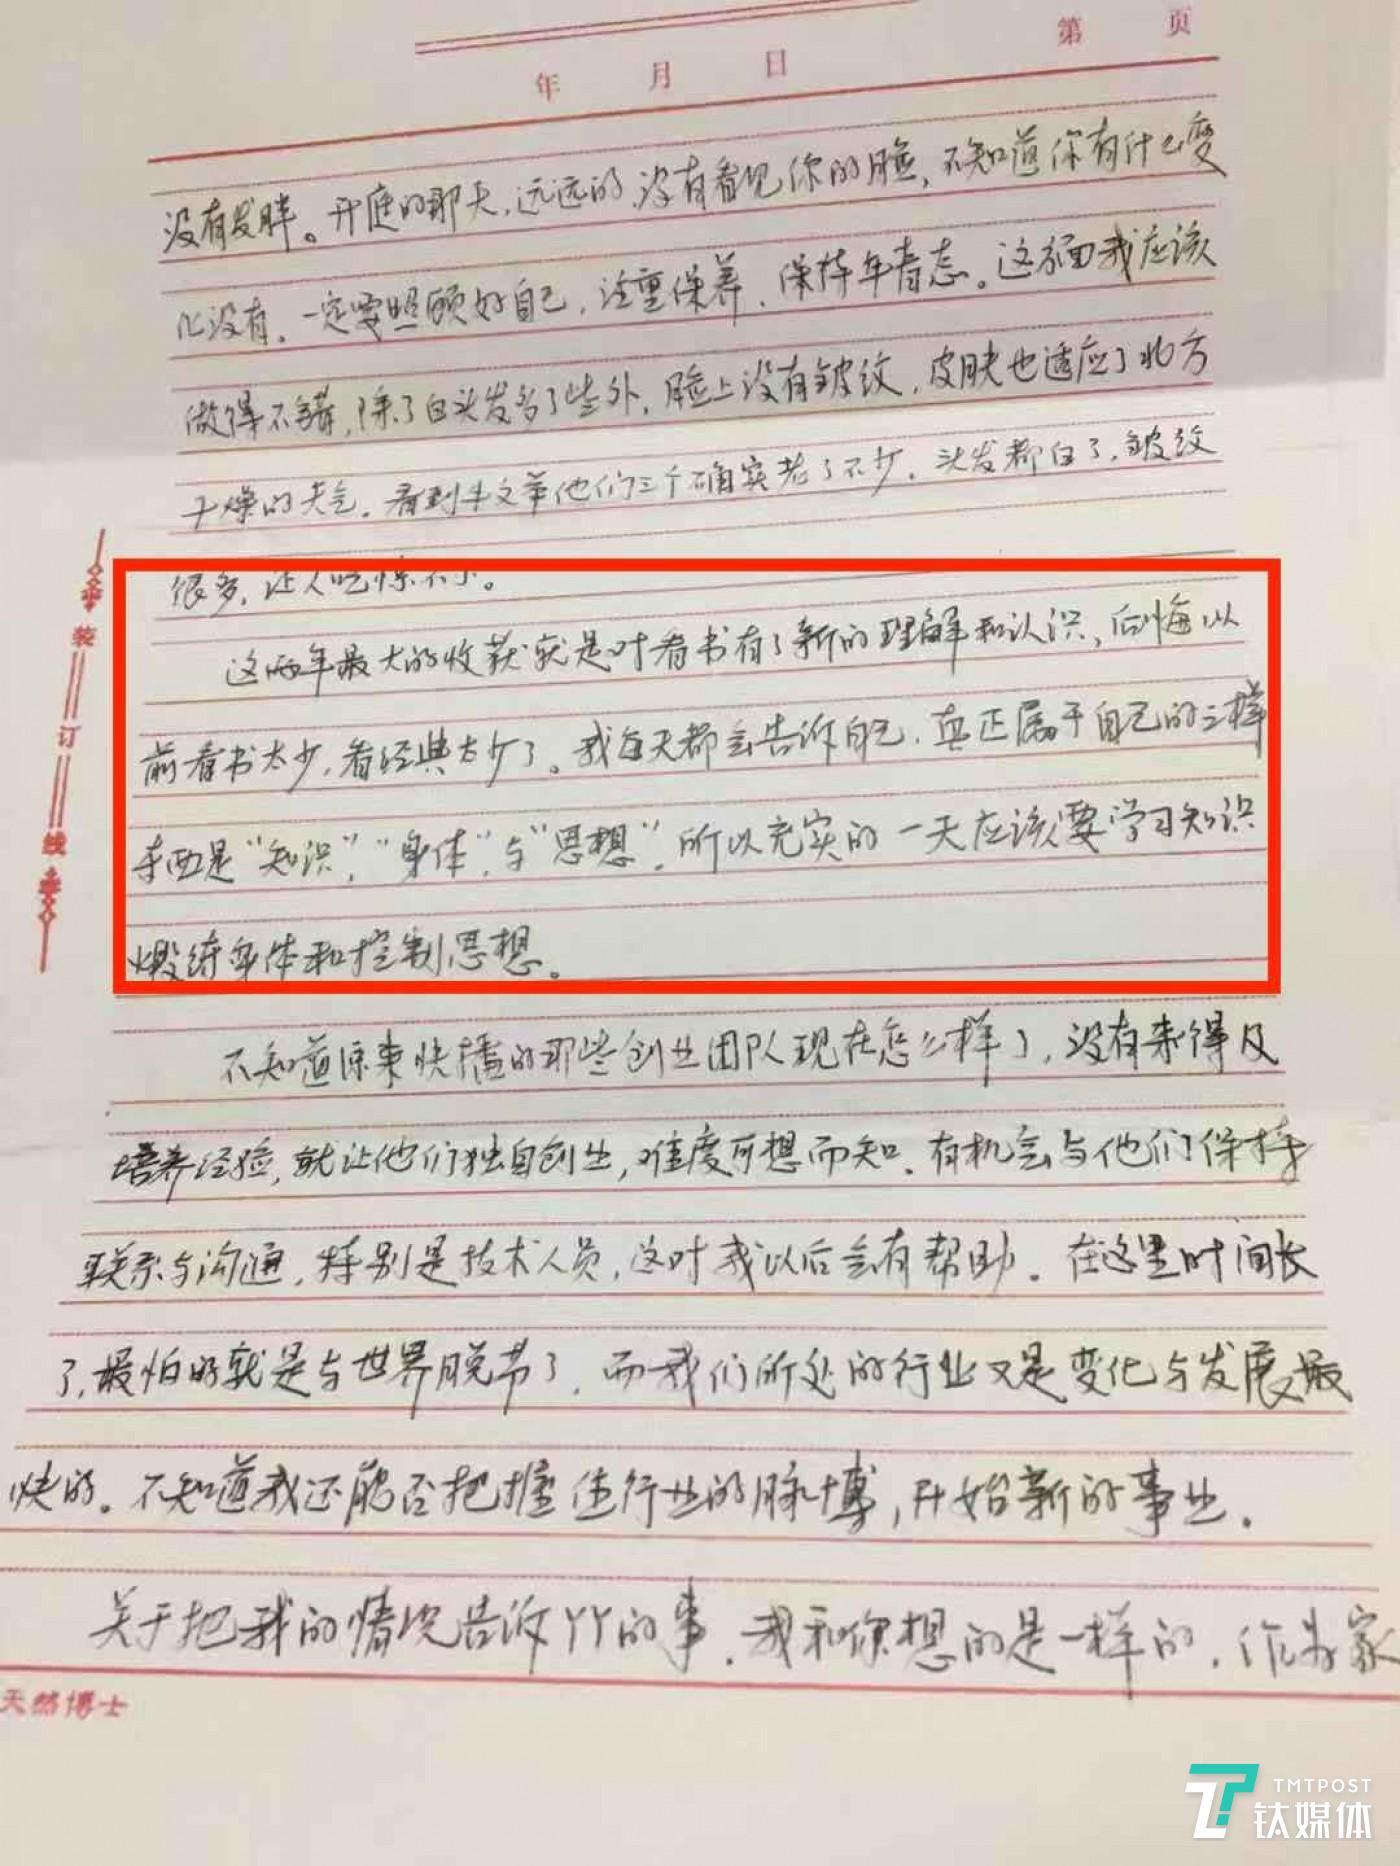 第 页
年 月 日
没有发胖。开庭的那天,远远的,没有看见你的脸,不知道你有什么变
化没有。一定要照顾好自己,注重保养,保持年青态。这方面我应该
做得不错,除了白头发多了些外,脸上没有皱纹,皮肤也适应了北方
干燥的天气。看到牛文举他们三个确实老了不少,头发都白了,皱纹
很多,让人吃惊不小。
这两年最大的收获就是对看书有了新的理解和认识,后悔以
前看书太少,看经典太少了。我每天都会告诉自己,真正属于自己的三样
东西是“知识”,“身体”,与“思想”,所以充实的一天应该要学习知识
煅练身体和控制思想。
不知道原来快播的那些创业团队现在怎么样了,没有来得及
培养经验,就让他们独自创业,难度可想而知。有机会与他们保持
联系与沟通,特别是技术人员,这对我以后会有帮助。在这里时间长
了,最怕的就是与世界脱节了,而我们所处的行业又是变化与发展最
快的。不知道我还能否把握住行业的脉搏,开始新的事业。
关于把我的情况告诉丫丫的事,我和你想的是一样的,作为家
装订线
天然博士
TMTPOST
钛媒体